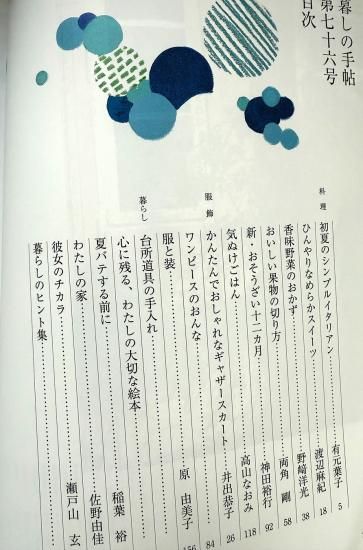 暮しの手帖
第七十六号
目次
料理
初夏のシンプルイタリアン 有元葉子 5
ひんやりなめらかスイーツ 渡辺麻紀 18
香味野菜のおかず 野﨑洋光 38
おいしい果物の切り方 両角 剛 58
新・おそうざい十二カ月 神田裕行 92
気ぬけごはん 高山なおみ 118
服飾
かんたんでおしゃれなギャザースカート 井出恭子 26
ワンピースのおんな 84
服と装 原 由美子 156
暮らし
台所道具の手入れ
心に残る、わたしの大切な絵本
夏バテする前に 稲葉 裕
わたしの家 佐野由佳
彼女のチカラ 瀬戸山 玄
暮らしのヒント集